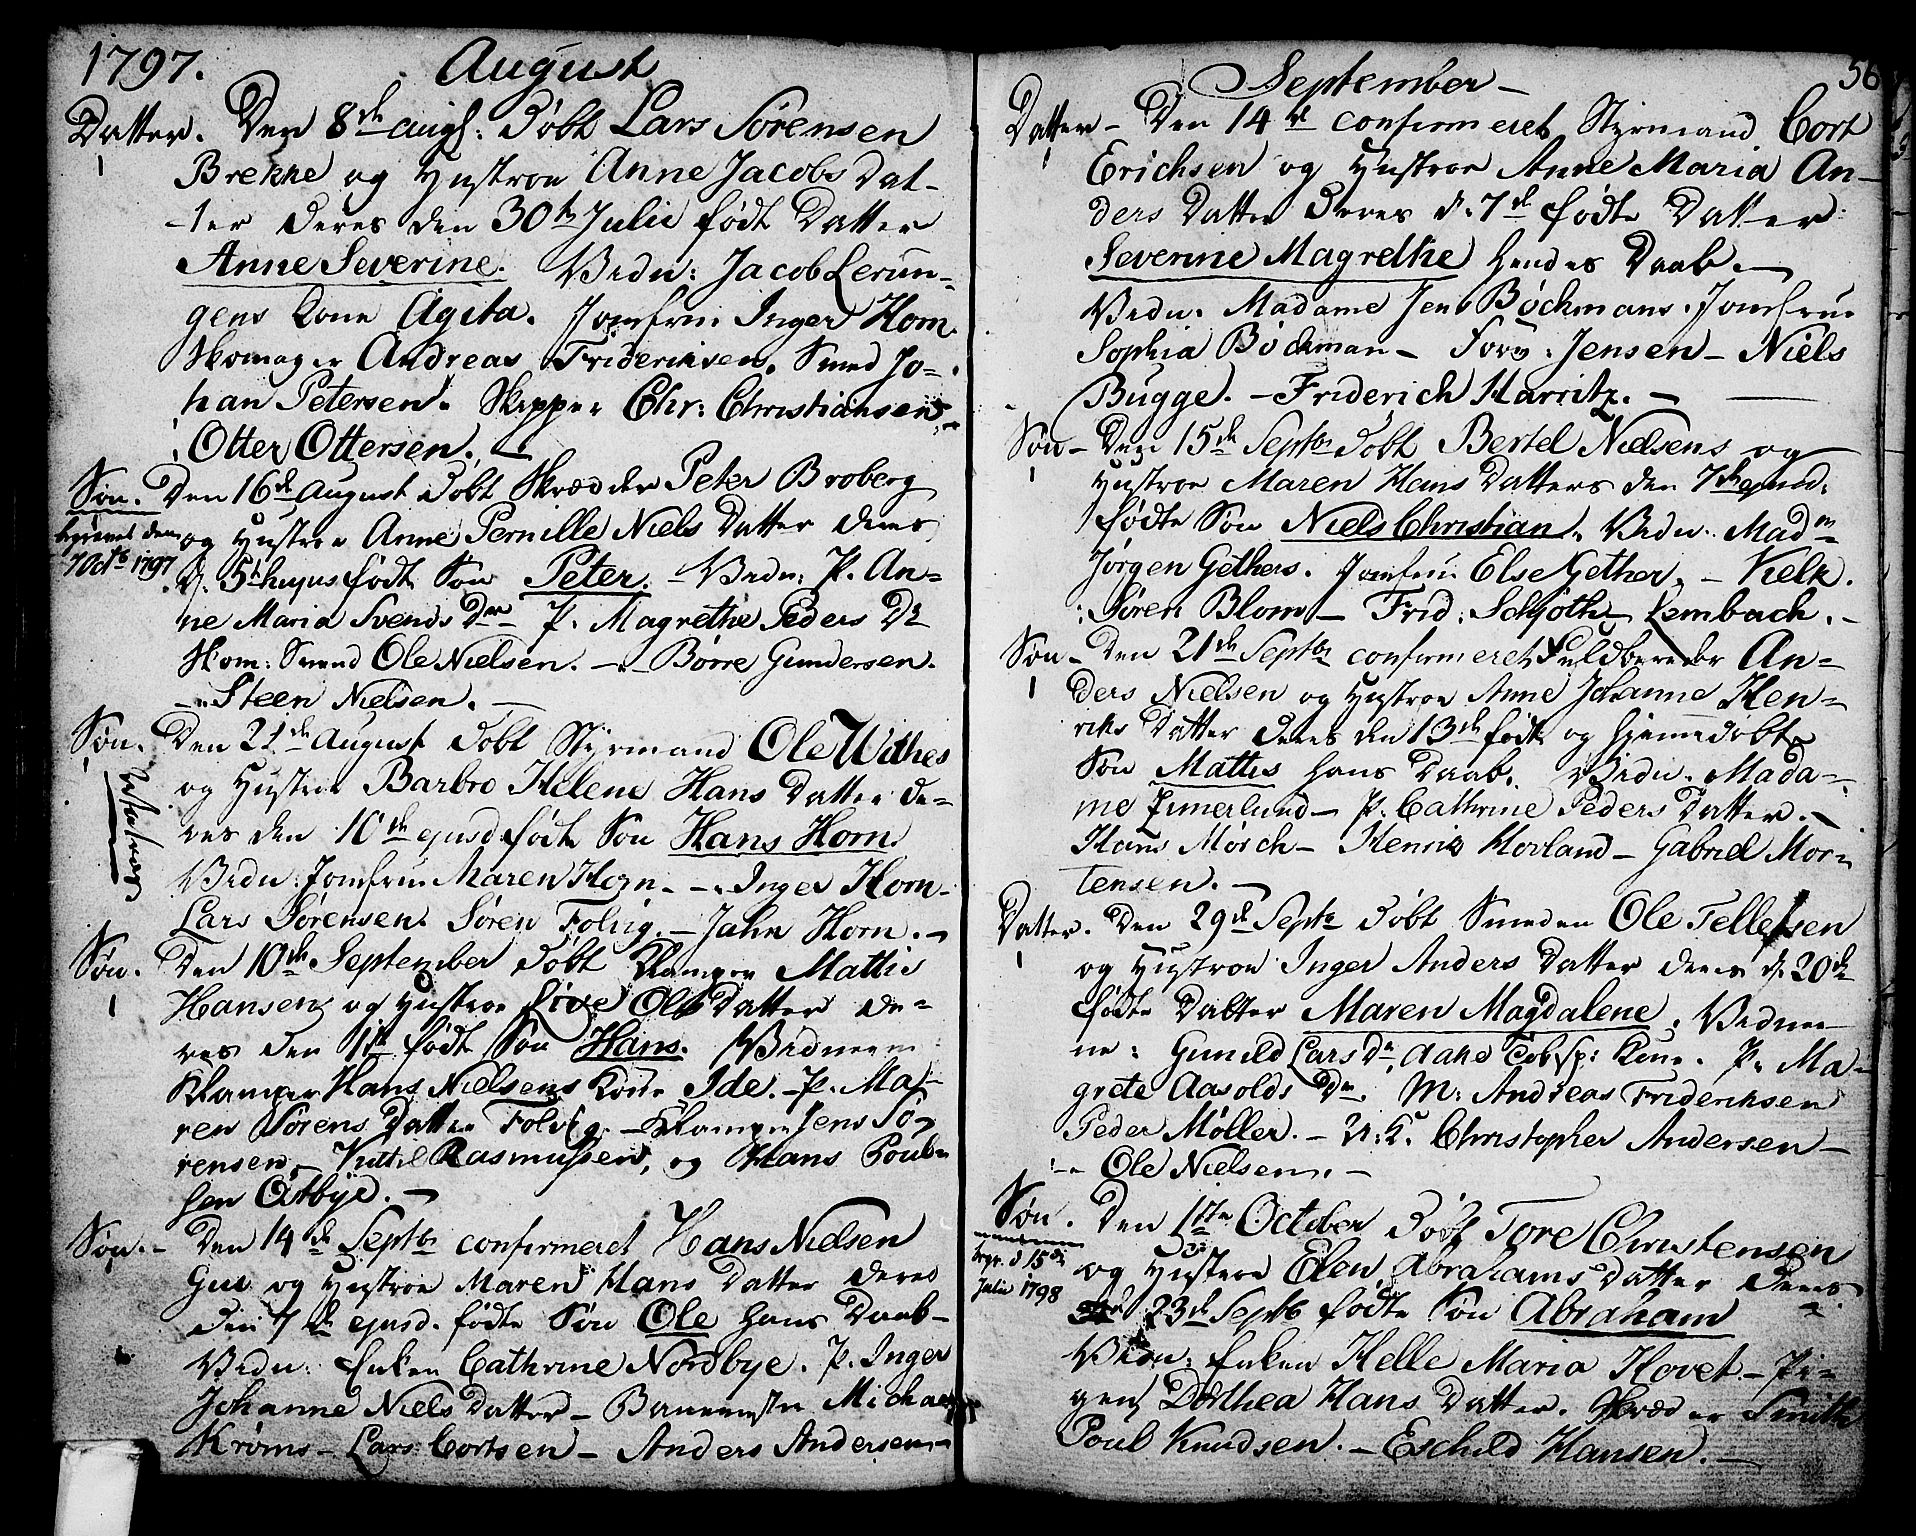 1797. August
Datter. Den 8de augs: døbt Lars Sörensen
Brekke og Hustroe Anne Jacobs Dat-
ter deres den 30te Julii født Datter
Anne Severine. Vidn: Jacob Lerun-
gens Kone Agita. Jomfru Inger Horn.
Skomager Andreas Friderichsen. Smed Jo-
han Petersen. Skipper Chr: Christiansen,
Otter Ottersen.
Søn. Den 16de August døbt Skrædder Peter Broberg
begravet den
7 Octb 1797
og Hustroe Anne Pernille Niels Datter deres
d. 5te hujus født Søn Peter. - Vidn: P. An-
ne Maria Svends Dr P. Magrethe Peders Dr
Hom: Smed Ole Nielsen. - Börre Gundersen.
- Steen Nielsen.
Søn. Den 21de August døbt Styrmand Ole Withes
og Hustroe Barbro Helene Hans Datter de-
res den 10de ejusd. fødte Søn Hans Horn.
Vidn: Jomfru Maren Horn. - Inger Horn.
Lars Sörensen. Sören Folvig. - Jahn Horn.
Søn. Den 10de September døbt Klamper Mathis
Hansen og Hustroe Live Ols Datter de-
res den 1ste født Søn Hans. Vidnerne
Klamper Hans Nielsens Kone Ide. - P. Ma-
ren Sörens Datter Folvig. - Klamper Jens Sö-
rensen, Kittel Rasmussen, og Hans Poul-
sen Östbye.
Søn. - Den 14de Septbr confirmeret Hans Nielsen
Gui og Hustroe Maren Hans Datter deres
den 7de ejusd. fødte Søn Ole hans Daab-
Vidn: Enken Cathrine Nordbye. P. Inger
Johanne Niels Datter - Michael
Kröms - Lars Cortsen - Anders Andersen
56
September
Datter - Den 14de confirmeret Styrmand Cort
Erichsen og Hustroe Anne Maria An-
ders Datter deres d. 7de fødte Datter
Severine Magrethe hendes Daab.
Vidn. Madame Jens Böckmans. Jomfrue
Sophia Böckman - Jensen - Niels
Bugge. - Friderich Harritz.
Søn - Den 15de Septbr døbt Bertel Nielsens og
Hustroe Maren Hans Datters den 7de ejusd.
fødte Søn Niels Christian. Vidn. Madm
Jörgen Gethers. Jomfrue Else Gether. - Kelk.
Sören Blom - Frid: Schjöth - Lembach. -
Søn - Den 21de Septbr confirmeret Fuldbereder An-
ders Nielsen og Hustroe Anne Johanne Hen-
richs Datter deres den 13de født og hjemmedøbte
Søn Mattis hans Daab. Vidn. Mada-
me Zimerlund - P. Cathrine Peders Datter.
Hans Mörch - Henrik Hovland - Gabriel Mor-
tensen.
Datter. Den 29de Septbr døbt Smeden Ole Tellefsen
og Hustroe Inger Anders Datter deres d. 20de
fødte Datter Maren Magdalene. Vidner-
ne: Gunild Lars Dr, Kone. P. Ma-
grete Aasolds Dr. M. Andreas Frideriksen
Peder Møller. - U.K. Christopher Andersen -
Ole Nielsen.
Søn. Den 1ste October døbt Tore Christensen
begr. d 15de
Julii 1798
og Hustroe Elen Abrahams Datter deres
23de Septb fødte Søn Abraham
Vidn: Enken Helle Maria Hovet. - Pi-
gen Dorthea Hans Datter. Skræder Smith
Poul Knudsen. - Eschild Hansen.